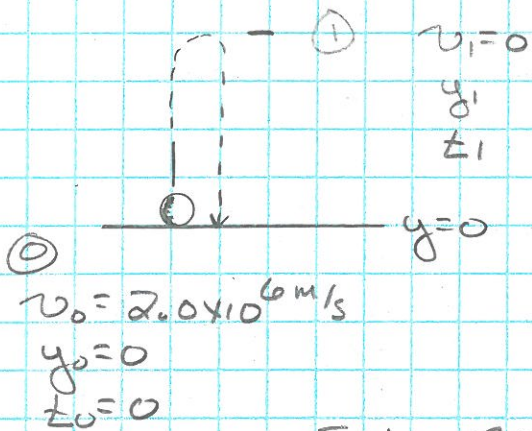 ① v₁=0
y₁
t₁
y=0
⓪
v₀= 2.0x10⁶ m/s
y₀=0
t₀=0